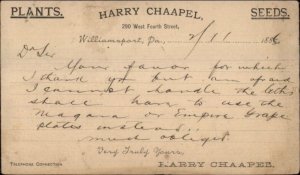 PLANTS. HARRY CHAAPEL, SEEDS.
290 West Fourth Street,
Williamsport, Pa., 2/11 1886
Dr Sir
Your favor for which
I thank you but am afraid
I cannot handle the
shall have to use the
Niagara or Empire Grape
plates instead.
much obliged
Very Truly Yours,
TELEPHONE CONNECTION. HARRY CHAAPEL.